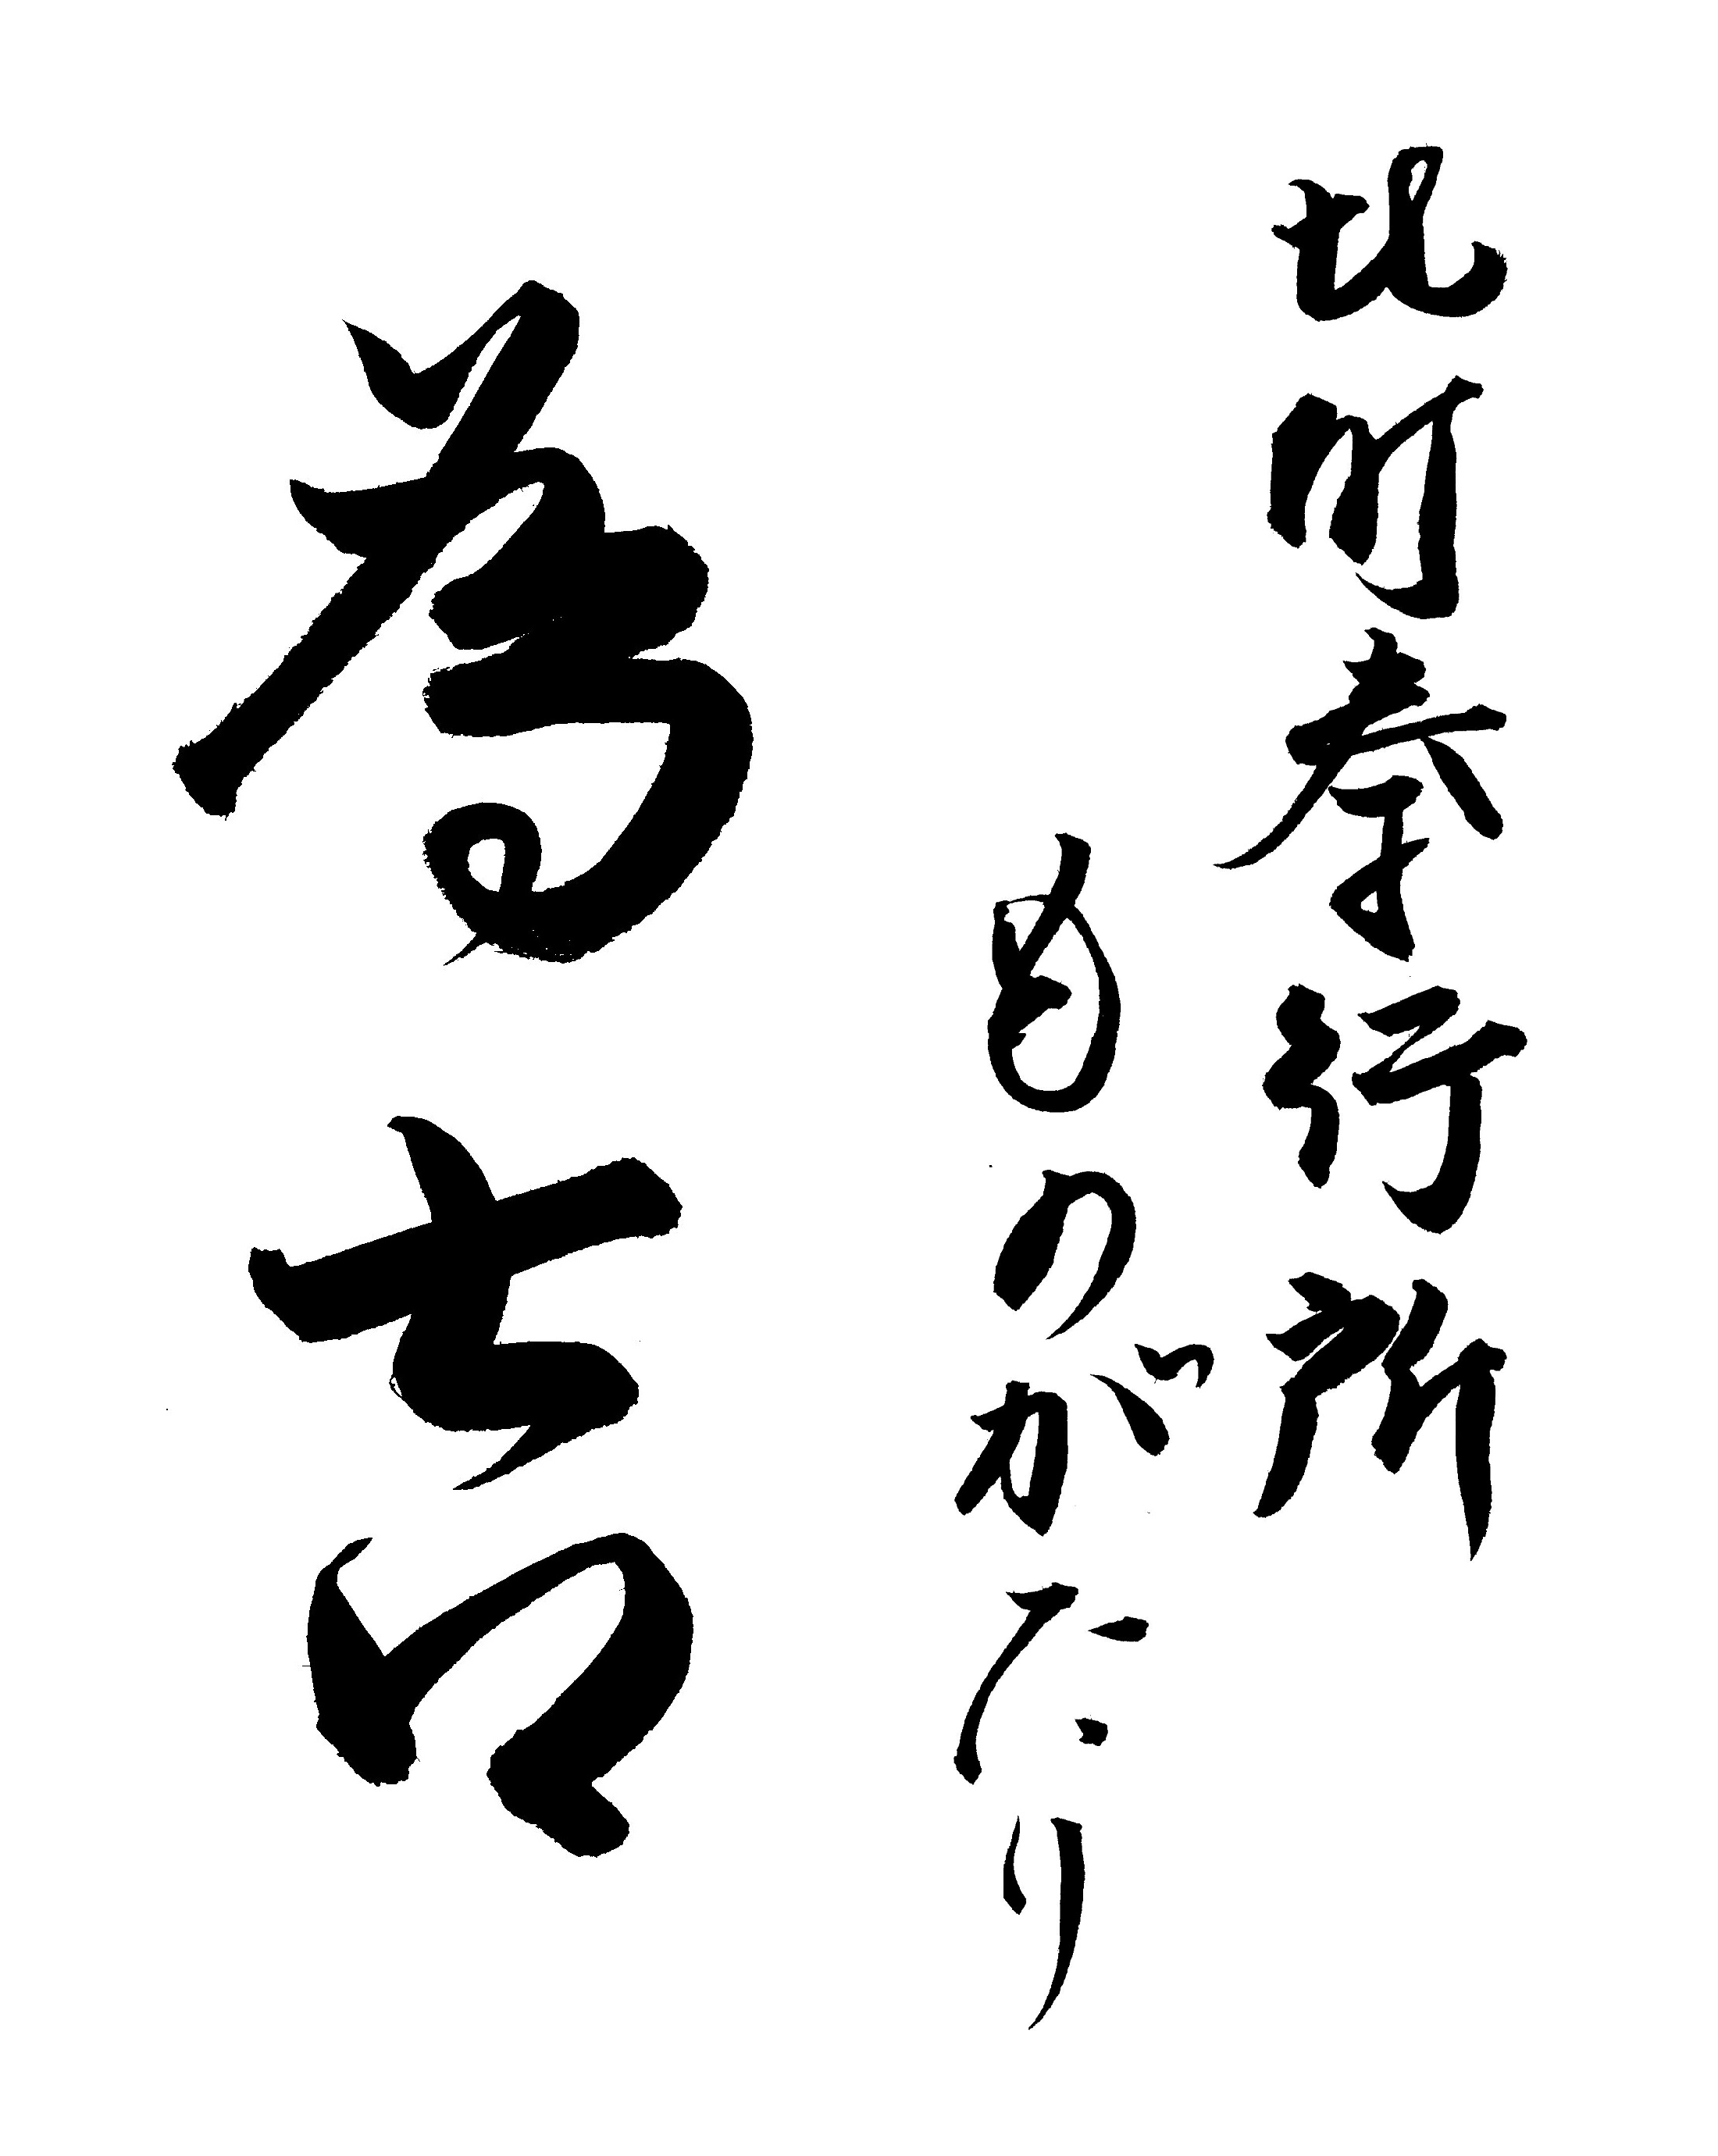 北町奉行所
ものがたり
為吉